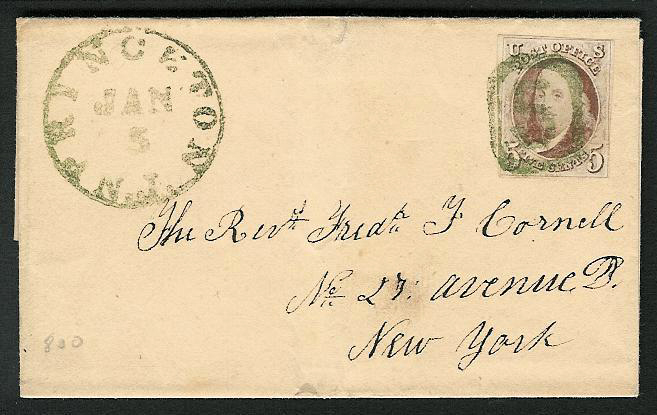 PRINCETON N.J.
JAN
5
U S
POST OFFICE
FIVE CENTS
5 5
The Revd. Fredk. F Cornell
No 27. avenue B.
New York
800